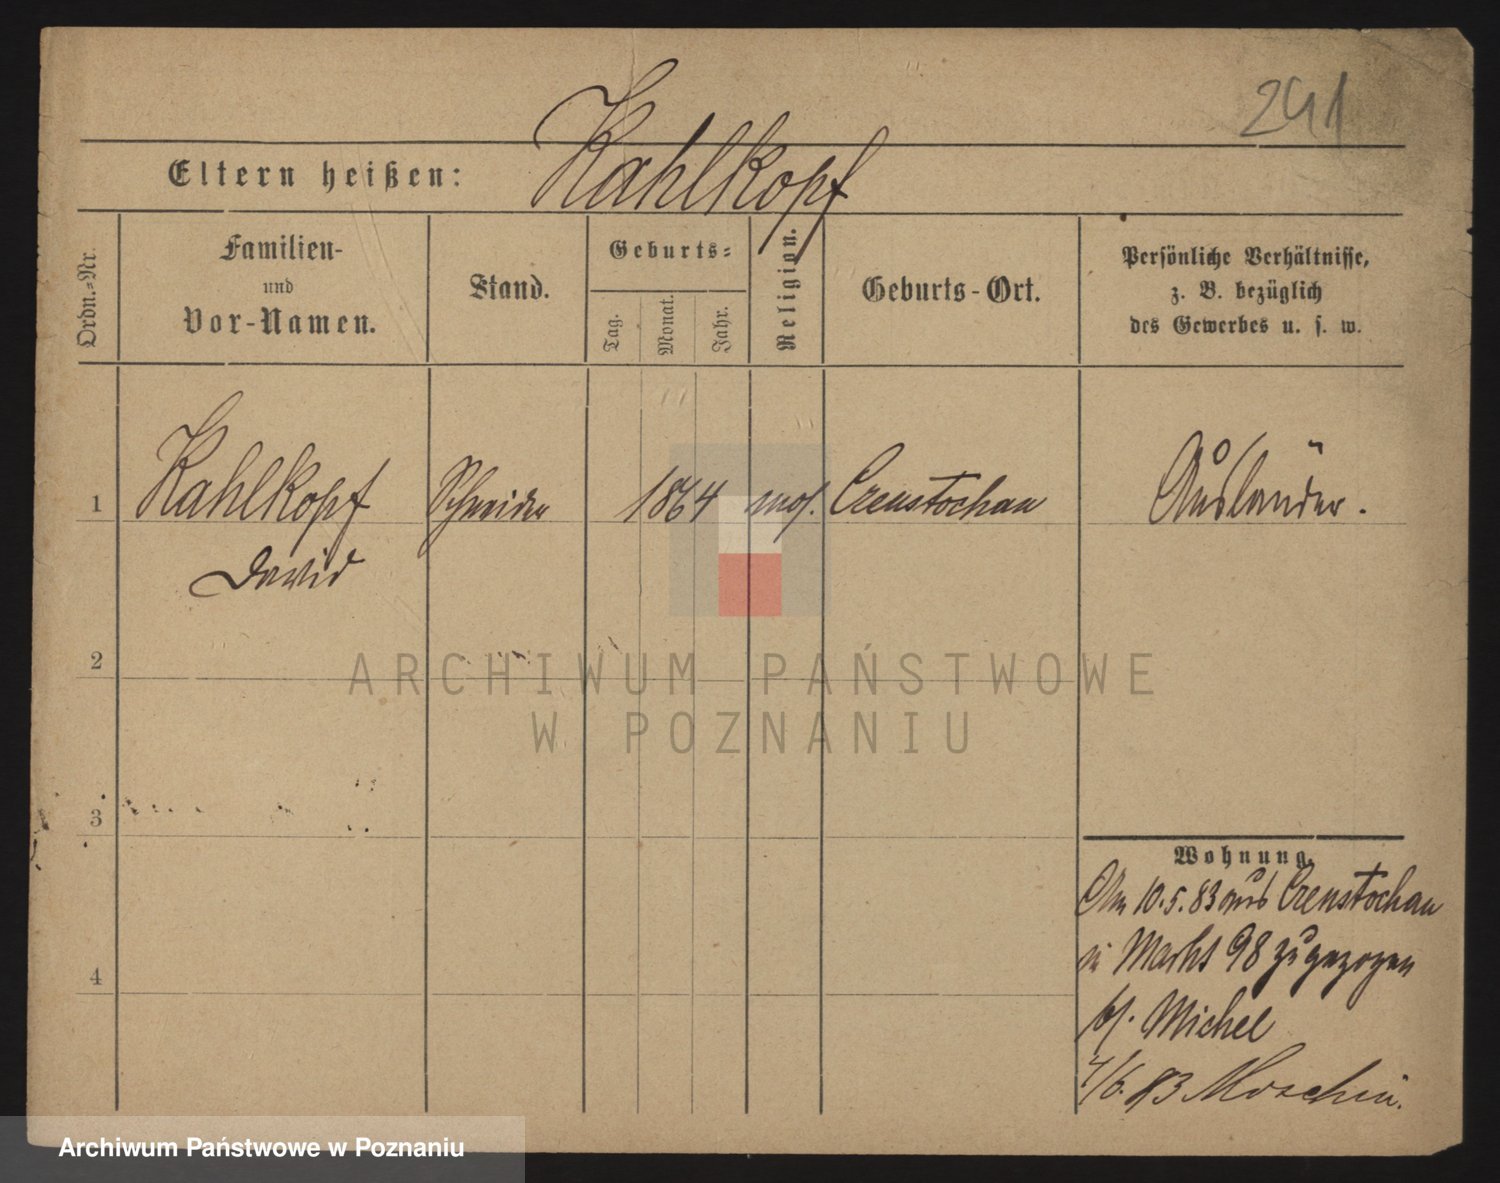 241
Eltern heißen: Kahlkopf
Ordn.-Nr.
Familien-
und
Vor-Namen.
Stand.
Geburts-
Tag.
Monat.
Jahr.
Religion.
Geburts-Ort.
Persönliche Verhältnisse,
z. B. bezüglich
des Gewerbes u. s. w.
1 Kahlkopf Schneider 1864 mos. Czenstochau Ausländer.
David
2
ARCHIWUM PAŃSTWOWE
W POZNANIU
3
Wohnung.
Am 10.5.83 aus Czenstochau
in Markt 98 zugezogen
4
bei Michel
4/6.83 Moschin.
Archiwum Państwowe w Poznaniu